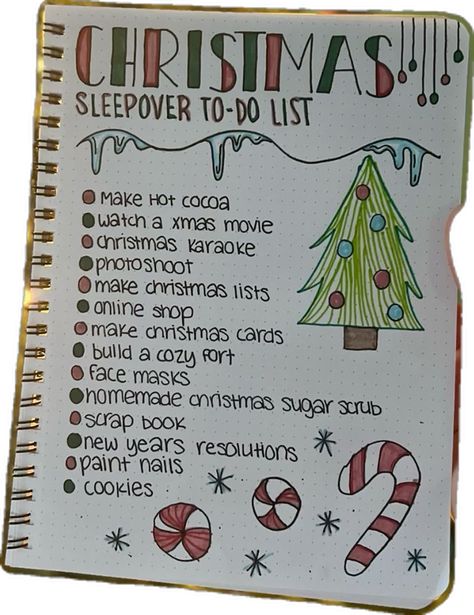 CHRISTMAS
SLEEPOVER TO-DO LIST
Make Hot cocoa
watch a xmas movie
christmas karaoke
photoshoot
make christmas lists
online shop
make christmas cards
build a cozy fort
face masks
homemade christmas sugar scrub
scrap book
new years resolutions
paint nails
cookies